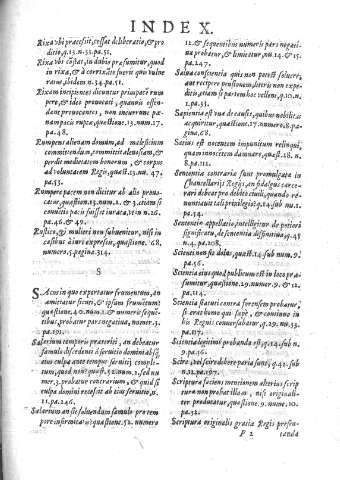 INDEX.
Rixa vbi præcesit, cessat deliberatio, & pro
ditio, q.13.n.32.pa.51.
Rixa vbi constat, in dubio præsumitur, quod
in rixa, & à corrixante fuerit quis vulne
ratus, ibidem n.34.pa.51.
Rixam incipientes dicuntur primi pacem rum
pere, & ideo prouocati, quamuis offen-
dant prouocantes, non incurrunt pœ-
nam pacis ruptæ, quæstione.13.num.17.
pa.48.
Rumpens alienam domum, ad maleficium
committendum, punitur ad
perdit medietatem bonorum, & corpus
ad voluntatem Regis, quæst.13.nu.47.
pa.53.
Rumpere pacem non dicitur ab alio prouo-
catus, quæstion.13.num.1. & 3. etiam si
commissis pacis fuisset iurata, vt in n.26.
pa.46. & 49.
Rustico, & mulieri non subuenitur, nisi in
casibus à iure expresis, quæstione. 68.
numero.5.pagina.314.
S
Sacus in quo exportatur frumentum, an
amittatur sicuti, & ipsum frumentum?
quæstione.40.num.1. & numeris seque
tibus probatur pars negatiua, nomer.3.
pa.191.
Salarium temporis præteriti, an debeatur
famulo discedenti à seruitio domini absque
eius culpa ante tempus seruitij comple-
tum, quod non? quæst.52.num.1. sed nu
mer.3. probatur contrarium, & quid si
culpa domini recessit ab eius seruitio, n.
11.pa.246.
Salarium an sit soluendum famulo pro tem
pore infirmitatis? quæstione.52.numero
12. & sequentibus numeris pars negati-
ua probatur, & limitatur, nu.14. & 15.
pa.247.
Salua conscientia quis non potest soluere,
aut recipere pensionem, literis non expe-
ditis, etiam si partes hoc vellent, q.10.n.
2.pa.35.
Sapientia est vna de causis, quibus nobilitas
acquiritur, quæstione.17.numero.8.pa-
gina.68.
Satius est nocentem impunitum relinqui,
quam innocentem damnare, quæst.28.n.
8.pa.112.
Sententia contraria sunt promulgata in
Chancellarijs Regijs, an fidalgus carce-
rari debeat pro debito ciuili, quando re-
nuntiauit tali priuilegio? q.14.sub nu.1.
pa.54.
Sententia appellatio, intelligitur de potiori
significatu, de sententia diffinitiua, q.48
n.4.pa.208.
Scienti non fit dolus, quæst.14.sub num.9.
pa.56.
Scientia eius quod publicum est in loco præ-
sumitur, quæstione.29.numer.9. & 12.
pa.114.
Scientia statuti contra forensem probatur,
si erat homo qui sæpè, & continuo in
his Regnis conuersabatur, q.29.nu.33.
pa.117.
Scientia legitimè probanda est, q.14.sub
n.9.pa.56.
Scire, & scire debere paria sunt, q.42.sub
n.12.pa.197.
Scriptura faciens mentionem alterius scrip
turæ non probat illam, nisi originali-
ter producatur, quæstione.9.nume.10.
pa.32.
Scriptura originalis gratiæ Regis præsen-
P 2 tanda